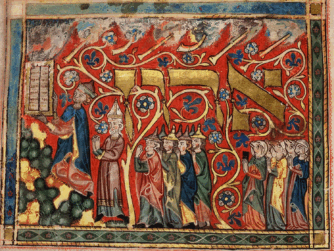 אדון